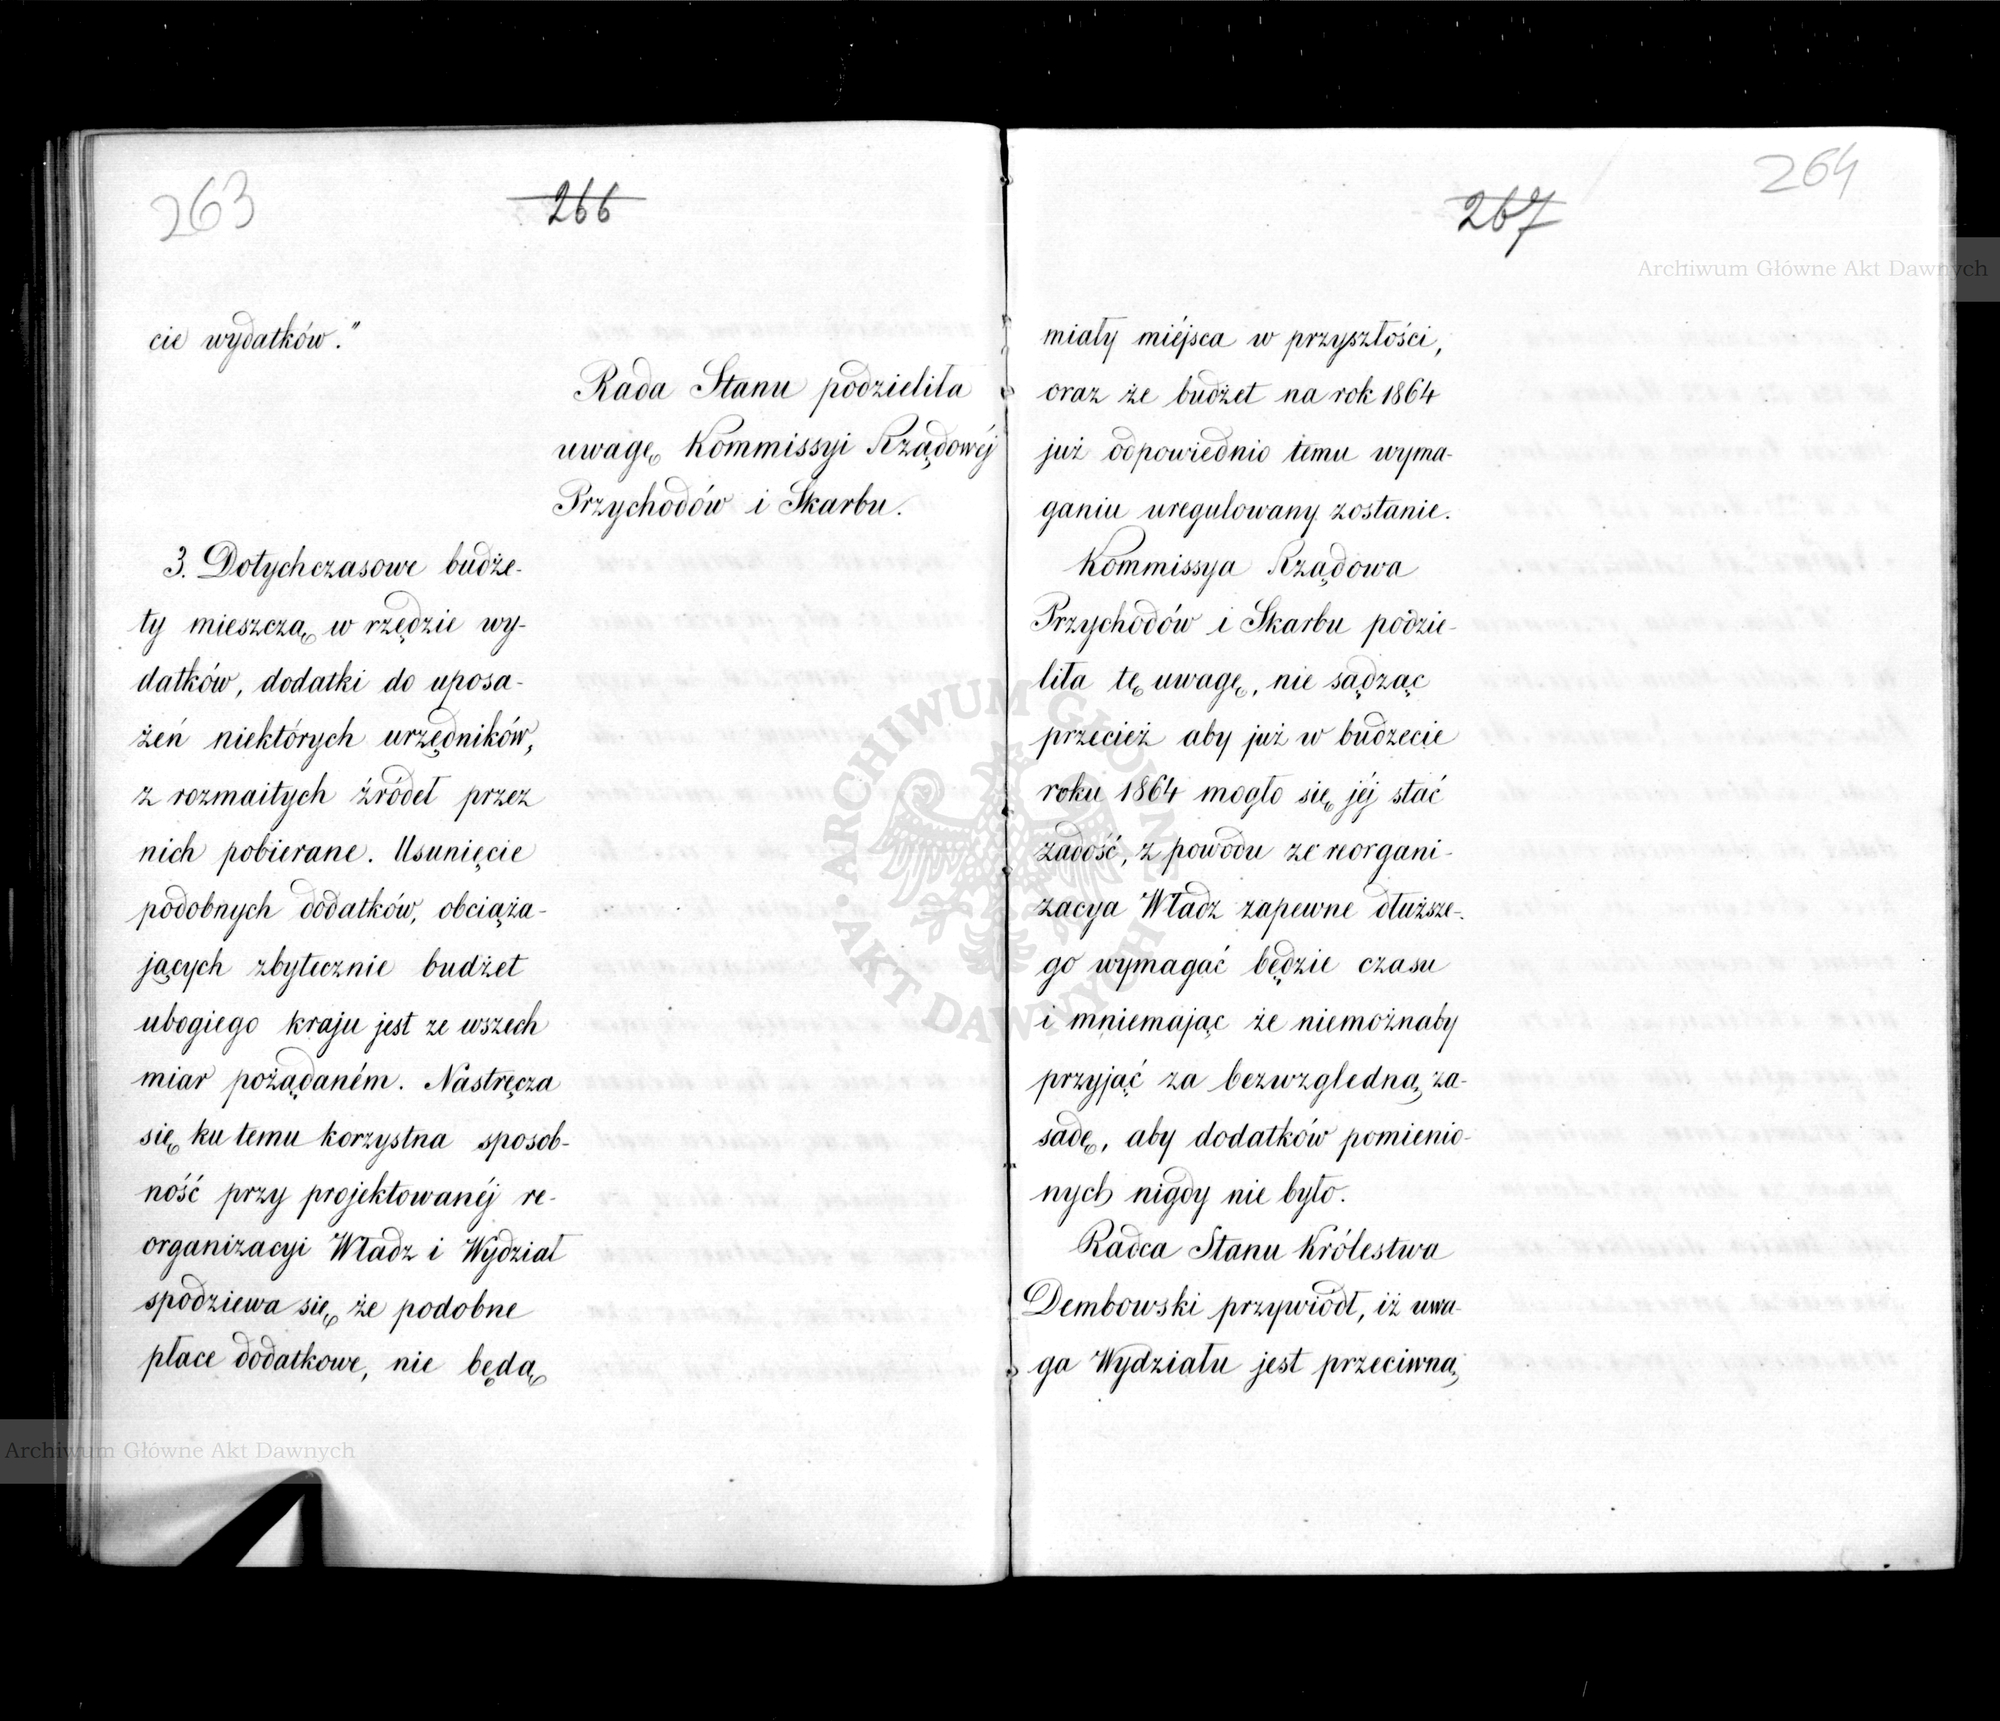 263
266
cie wydatków."
Rada Stanu podzieliła
uwagę Kommissyi Rządowéj
Przychodów i Skarbu.
3. Dotychczasowe budże-
ty mieszczą w rzędzie wy-
datków, dodatki do uposa-
żeń niektórych urzędników,
z rozmaitych źródeł przez
nich pobierane. Usunięcie
podobnych dodatków, obciąża-
jących zbytecznie budżet
ubogiego kraju jest ze wszech
miar pożądaném. Nastręcza
się ku temu korzystna sposob-
ność przy projektowanéj re-
organizacyi Władz i Wydział
spodziewa się, że podobne
płace dodatkowe, nie będą
Archiwum Główne Akt Dawnych
264
267
Archiwum Główne Akt Dawnych
miały miéjsca w przyszłości,
oraz że budżet na rok 1864
już odpowiednio temu wyma-
ganiu uregulowany zostanie.
Kommissya Rządowa
Przychodów i Skarbu podzie-
liła tę uwagę, nie sądząc
przecież aby już w budżecie
roku 1864 mogło się jéj stać
zadość, z powodu że reorgani-
zacya Władz zapewne dłuższe-
go wymagać będzie czasu
i mniemając że niemożnaby
przyjąć za bezwzgledną za-
sadę, aby dodatków pomienio-
nych nigdy nie było.
Radca Stanu Królestwa
Dembowski przywiódł, iż uwa-
ga Wydziału jest przeciwną
ARCHIWUM GŁÓWNE AKT DAWNYCH